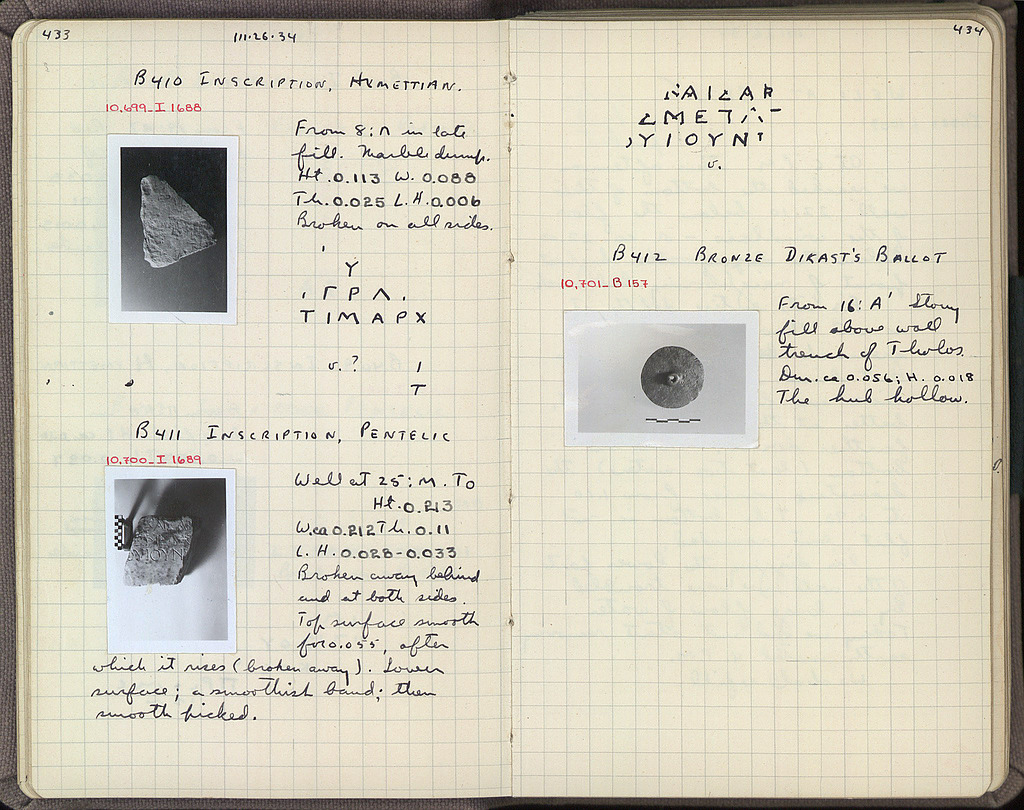 433
111·26·34
B410 INSCRIPTION, HYMETTIAN.
10,699_I 1688
From 8:Λ in late
fill. Marble dump.
Ht. 0.113 W. 0.088
Th. 0.025 L.H. 0.006
Broken on all sides.
Υ
ΓΡΛ
ΤΙΜΑΡΧ
v.?
Ι
Τ
B411 INSCRIPTION, PENTELIC
10,700_I 1689
Well at 25:M. To
Ht. 0.213
W. ca 0.212 Th. 0.11
L.H. 0.028-0.033
Broken away behind
and at both sides.
Top surface smooth
for 0.055, after
which it rises (broken away). Lower
surface; a smoothish band; then
smooth picked.
434
ΑΙΣΑΡ
ΣΜΕΓΑ
ΥΙΟΥΝ
v.
B412 BRONZE DIKAST'S BALLOT
10,701_B 157
From 16:A' Stony
fill above wall
trench of Tholos.
Dm. ca 0.056; H. 0.018
The hub hollow.